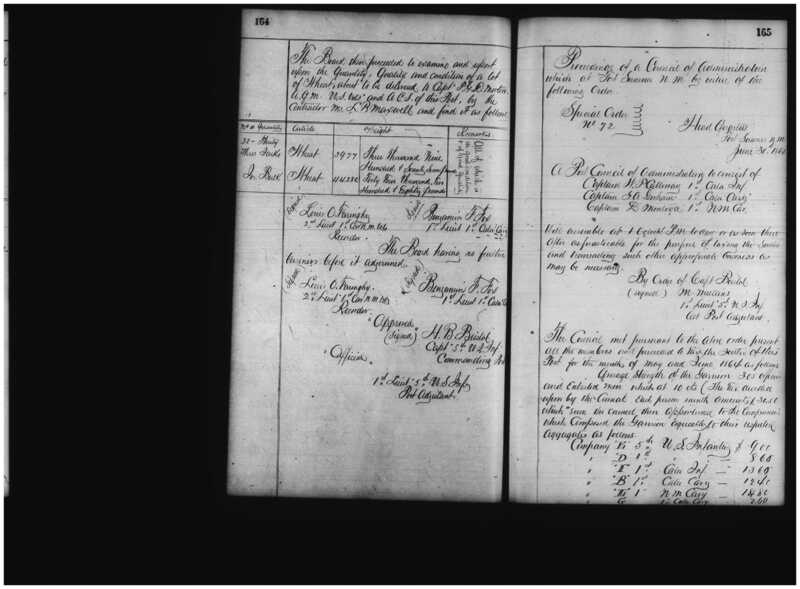 164
The Board then proceeded to examine and report
upon the Quantity, Quality and condition of a lot
of Wheat, about to be delivered to Capt P. G. D. Morton
A.Q.M. U.S. Vols and A.C.S. of this Post, by the
Contractor Mr. L. B. Maxwell and find it as follows
No or Quantity Article Weight Remarks
33 - Thirty
Three Sacks Wheat 2977 Two Thousand Nine
Hundred & Seventy Seven pounds
In Bulk Wheat Forty Four Thousand, Two
Hundred & Eighty pounds
All of which is
in good condition
& of Good Quality
(Signed) (Signed)
Louis O. Benjamin F. Fox
2nd Lieut 1st Cav N.M. Vols 1st Lieut 1st Cala Cav
Recorder
The Board having no further
business before it adjourned.
(Signed) (Signed)
Louis O. Benjamin F. Fox
2nd Lieut 1st Cav N.M. Vols 1st Lieut 1st Cala
Recorder
"Approved"
(Signed) H. B. Bristol
Capt 5th U.S. Inf
Commanding Post
"Official"
1st Lieut 5th U.S. Inf
Post Adjutant.
165
Proceedings of a Council of Administration
which at Fort Sumner N.M. by virtue of the
following Order
Special Order
No. 72
Head Quarters
Fort Sumner N.M.
June 30" 186
A Post Council of Administration to consist of
Captain 1st Cala Inf
Captain 1st Cala Cavy
Captain 1st N.M. Cav.
Will assemble at 1 Oclock P.M. to day or as soon there
after as practicable for the purpose of taxing the Sutler
and transacting such other appropriate business as
may be necessary.
By Order of Capt Bristol
(signed) M. Mullins
1st Lieut 5th U.S. Inf
Act Post Adjutant
The Council met pursuant to the above order present
all the members and proceeded to tax the Sutler of this
Post for the months of May and June 1864 as follows
Average Strength of the Garrison 305 officers
and Enlisted men which at 10 cts (The tax decided
upon by the Council each person month amounts $ 30.50
which sum the Council then apportioned to the Companies
which Composed the Garrison equally to their respective
Aggregates as follows
Company "E" 5th U.S. Infantry $
" "D" " " —
" "F" 1st Cala Inf —
" "B" 1st Cala Cavy —
" 1 N.M. Cavy —
" G 1st Cala Cavy